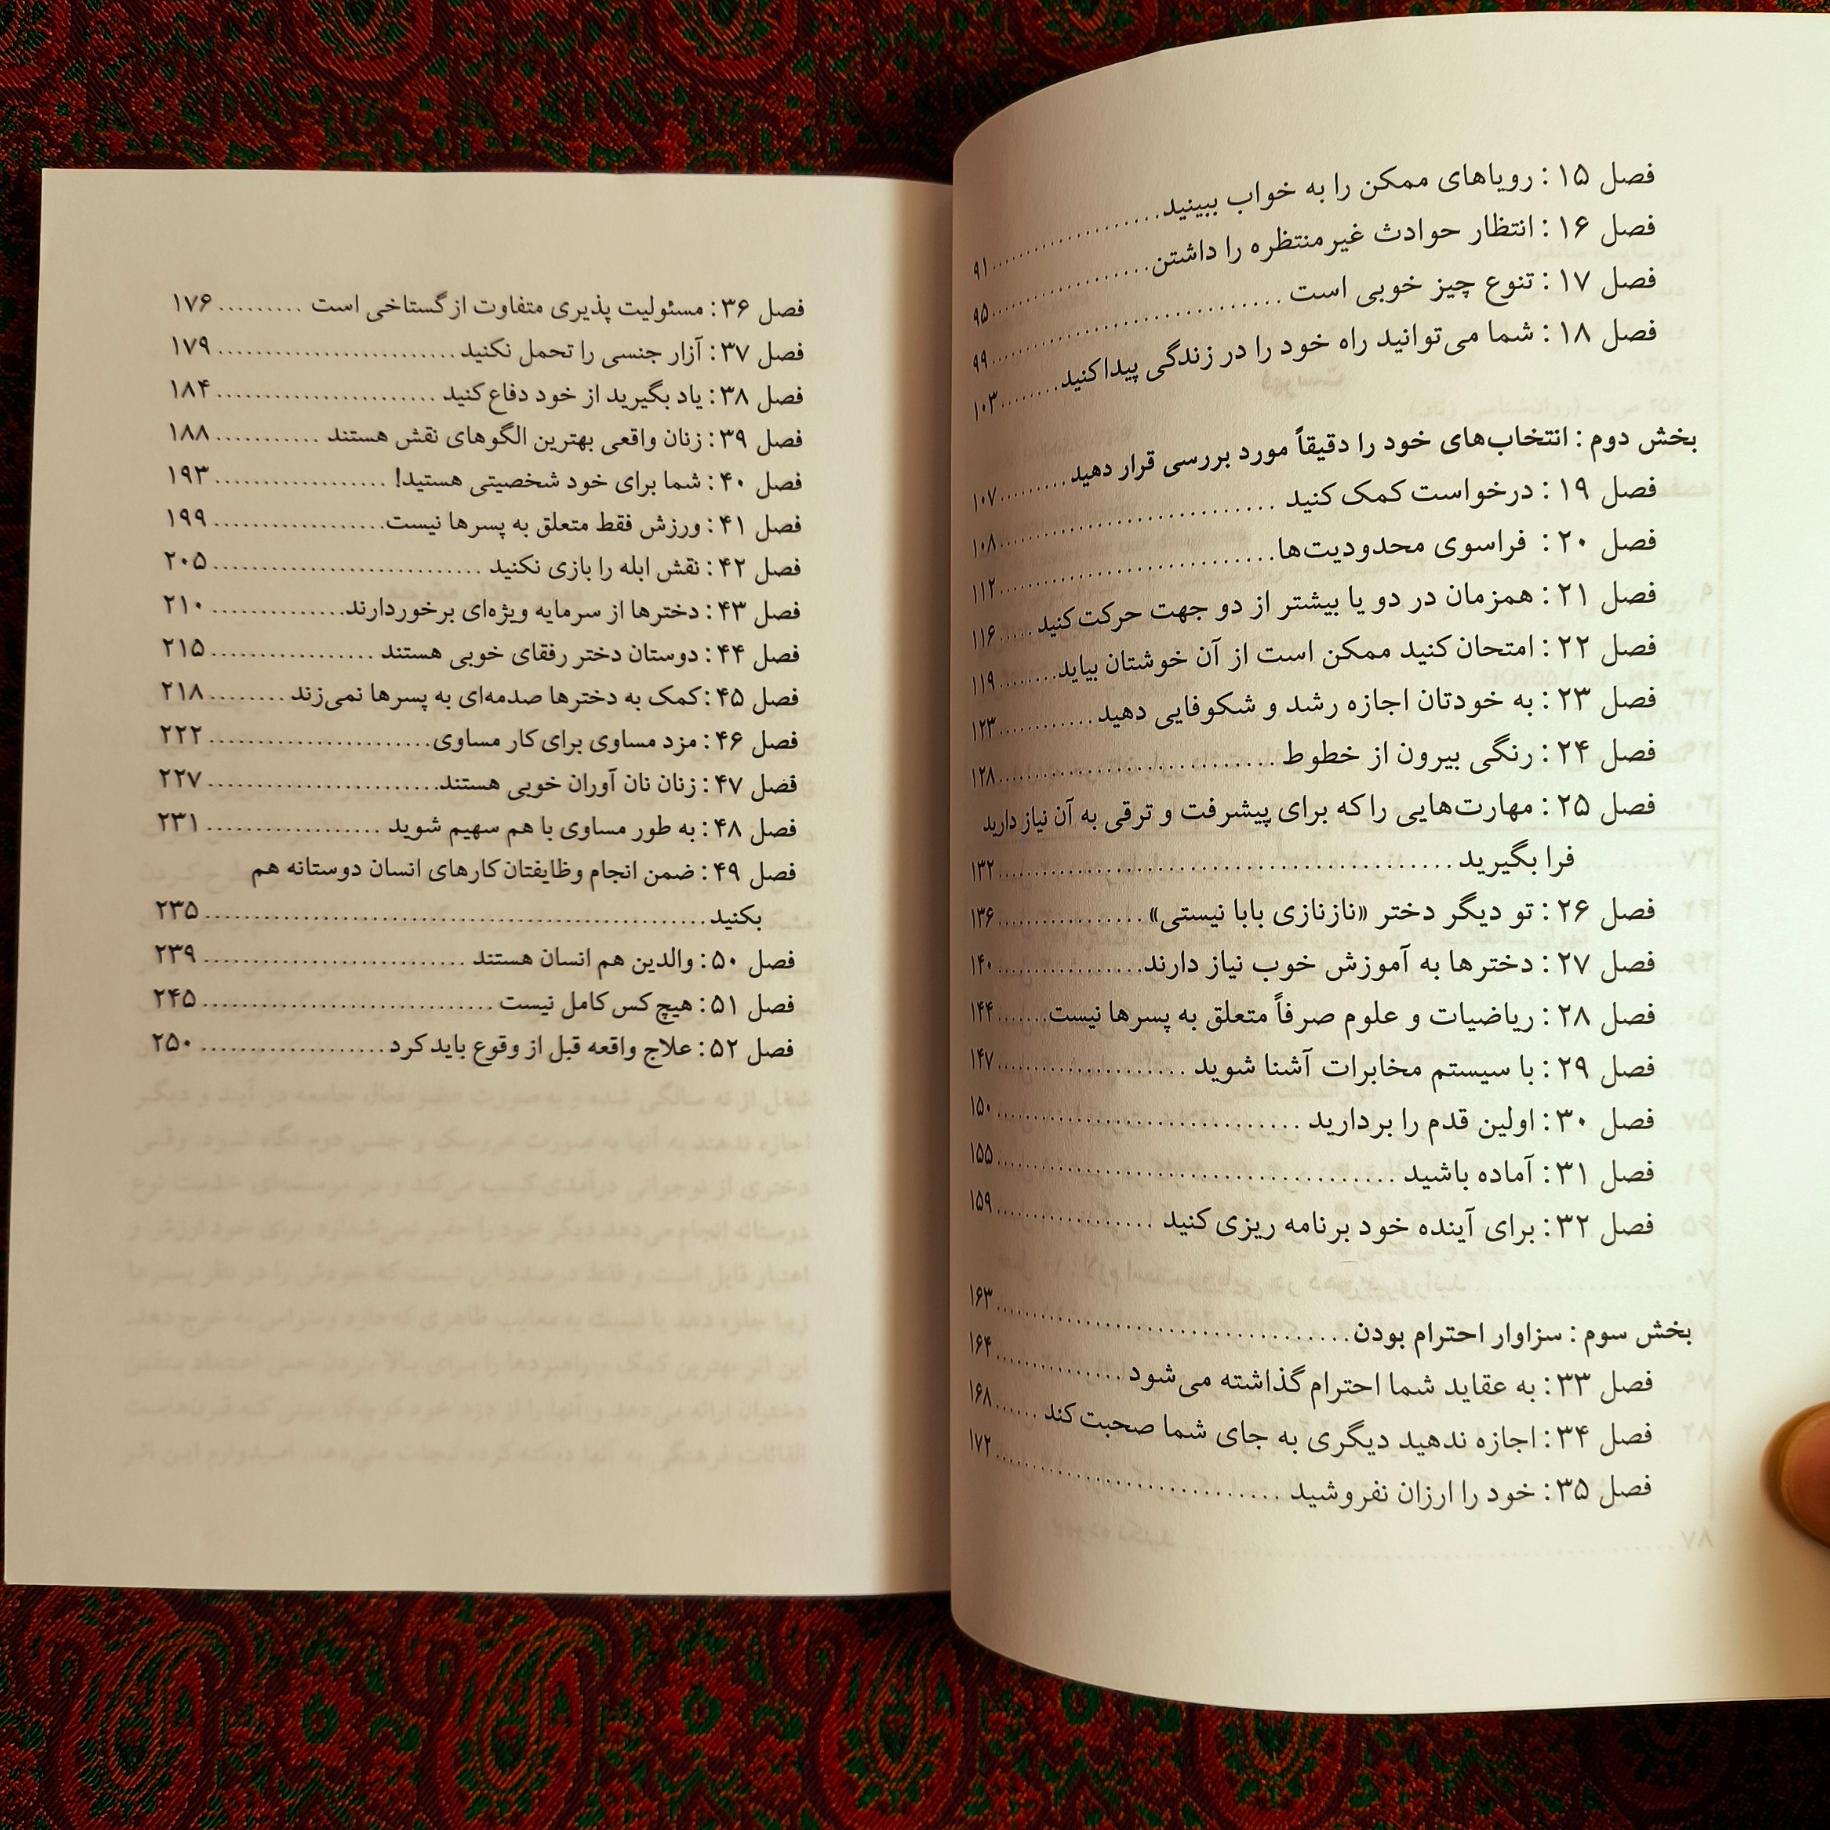 فصل ۱۵ : رویاهای ممکن را به خواب ببینید ........ ۹۱
فصل ۱۶ : انتظار حوادث غیرمنتظره را داشتن ........ ۹۵
فصل ۱۷ : تنوع چیز خوبی است ........ ۹۹
فصل ۱۸ : شما می‌توانید راه خود را در زندگی پیدا کنید ........ ۱۰۳
بخش دوم : انتخاب‌های خود را دقیقاً مورد بررسی قرار دهید ........ ۱۰۷
فصل ۱۹ : درخواست کمک کنید ........ ۱۰۸
فصل ۲۰ : فراسوی محدودیت‌ها ........ ۱۱۲
فصل ۲۱ : همزمان در دو یا بیشتر از دو جهت حرکت کنید ..... ۱۱۶
فصل ۲۲ : امتحان کنید ممکن است از آن خوشتان بیاید ........ ۱۱۹
فصل ۲۳ : به خودتان اجازه رشد و شکوفایی دهید ........ ۱۲۳
فصل ۲۴ : رنگی بیرون از خطوط ........ ۱۲۸
فصل ۲۵ : مهارت‌هایی را که برای پیشرفت و ترقی به آن نیاز دارید
فرا بگیرید ........ ۱۳۲
فصل ۲۶ : تو دیگر دختر «نازنازی بابا نیستی» ........ ۱۳۶
فصل ۲۷ : دخترها به آموزش خوب نیاز دارند ........ ۱۴۰
فصل ۲۸ : ریاضیات و علوم صرفاً متعلق به پسرها نیست ....... ۱۴۴
فصل ۲۹ : با سیستم مخابرات آشنا شوید ........ ۱۴۷
فصل ۳۰ : اولین قدم را بردارید ........ ۱۵۰
فصل ۳۱ : آماده باشید ........ ۱۵۵
فصل ۳۲ : برای آینده خود برنامه ریزی کنید ........ ۱۵۹
بخش سوم : سزاوار احترام بودن ........ ۱۶۳
فصل ۳۳ : به عقاید شما احترام گذاشته می‌شود ........ ۱۶۴
فصل ۳۴ : اجازه ندهید دیگری به جای شما صحبت کند ...... ۱۶۸
فصل ۳۵ : خود را ارزان نفروشید ........ ۱۷۲
فصل ۳۶ : مسئولیت پذیری متفاوت از گستاخی است ......... ۱۷۶
فصل ۳۷ : آزار جنسی را تحمل نکنید ........ ۱۷۹
فصل ۳۸ : یاد بگیرید از خود دفاع کنید ........ ۱۸۴
فصل ۳۹ : زنان واقعی بهترین الگوهای نقش هستند ........ ۱۸۸
فصل ۴۰ : شما برای خود شخصیتی هستید! ........ ۱۹۳
فصل ۴۱ : ورزش فقط متعلق به پسرها نیست ........ ۱۹۹
فصل ۴۲ : نقش ابله را بازی نکنید ........ ۲۰۵
فصل ۴۳ : دخترها از سرمایه ویژه‌ای برخوردارند ........ ۲۱۰
فصل ۴۴ : دوستان دختر رفقای خوبی هستند ........ ۲۱۵
فصل ۴۵ : کمک به دخترها صدمه‌ای به پسرها نمی‌زند ........ ۲۱۸
فصل ۴۶ : مزد مساوی برای کار مساوی ........ ۲۲۲
فصل ۴۷ : زنان نان آوران خوبی هستند ........ ۲۲۷
فصل ۴۸ : به طور مساوی با هم سهیم شوید ........ ۲۳۱
فصل ۴۹ : ضمن انجام وظایفتان کارهای انسان دوستانه هم
بکنید ........ ۲۳۵
فصل ۵۰ : والدین هم انسان هستند ........ ۲۳۹
فصل ۵۱ : هیچ کس کامل نیست ........ ۲۴۵
فصل ۵۲ : علاج واقعه قبل از وقوع باید کرد ........ ۲۵۰